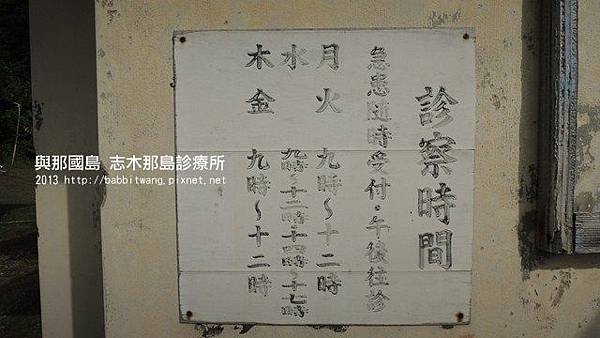 診察時間
急患随時受付・午後往診
月火 九時~十二時
水 九時~十二時・十四時~十七時
木金 九時~十二時
與那國島 志木那島診療所
2013 http://babbitwang.pixnet.net